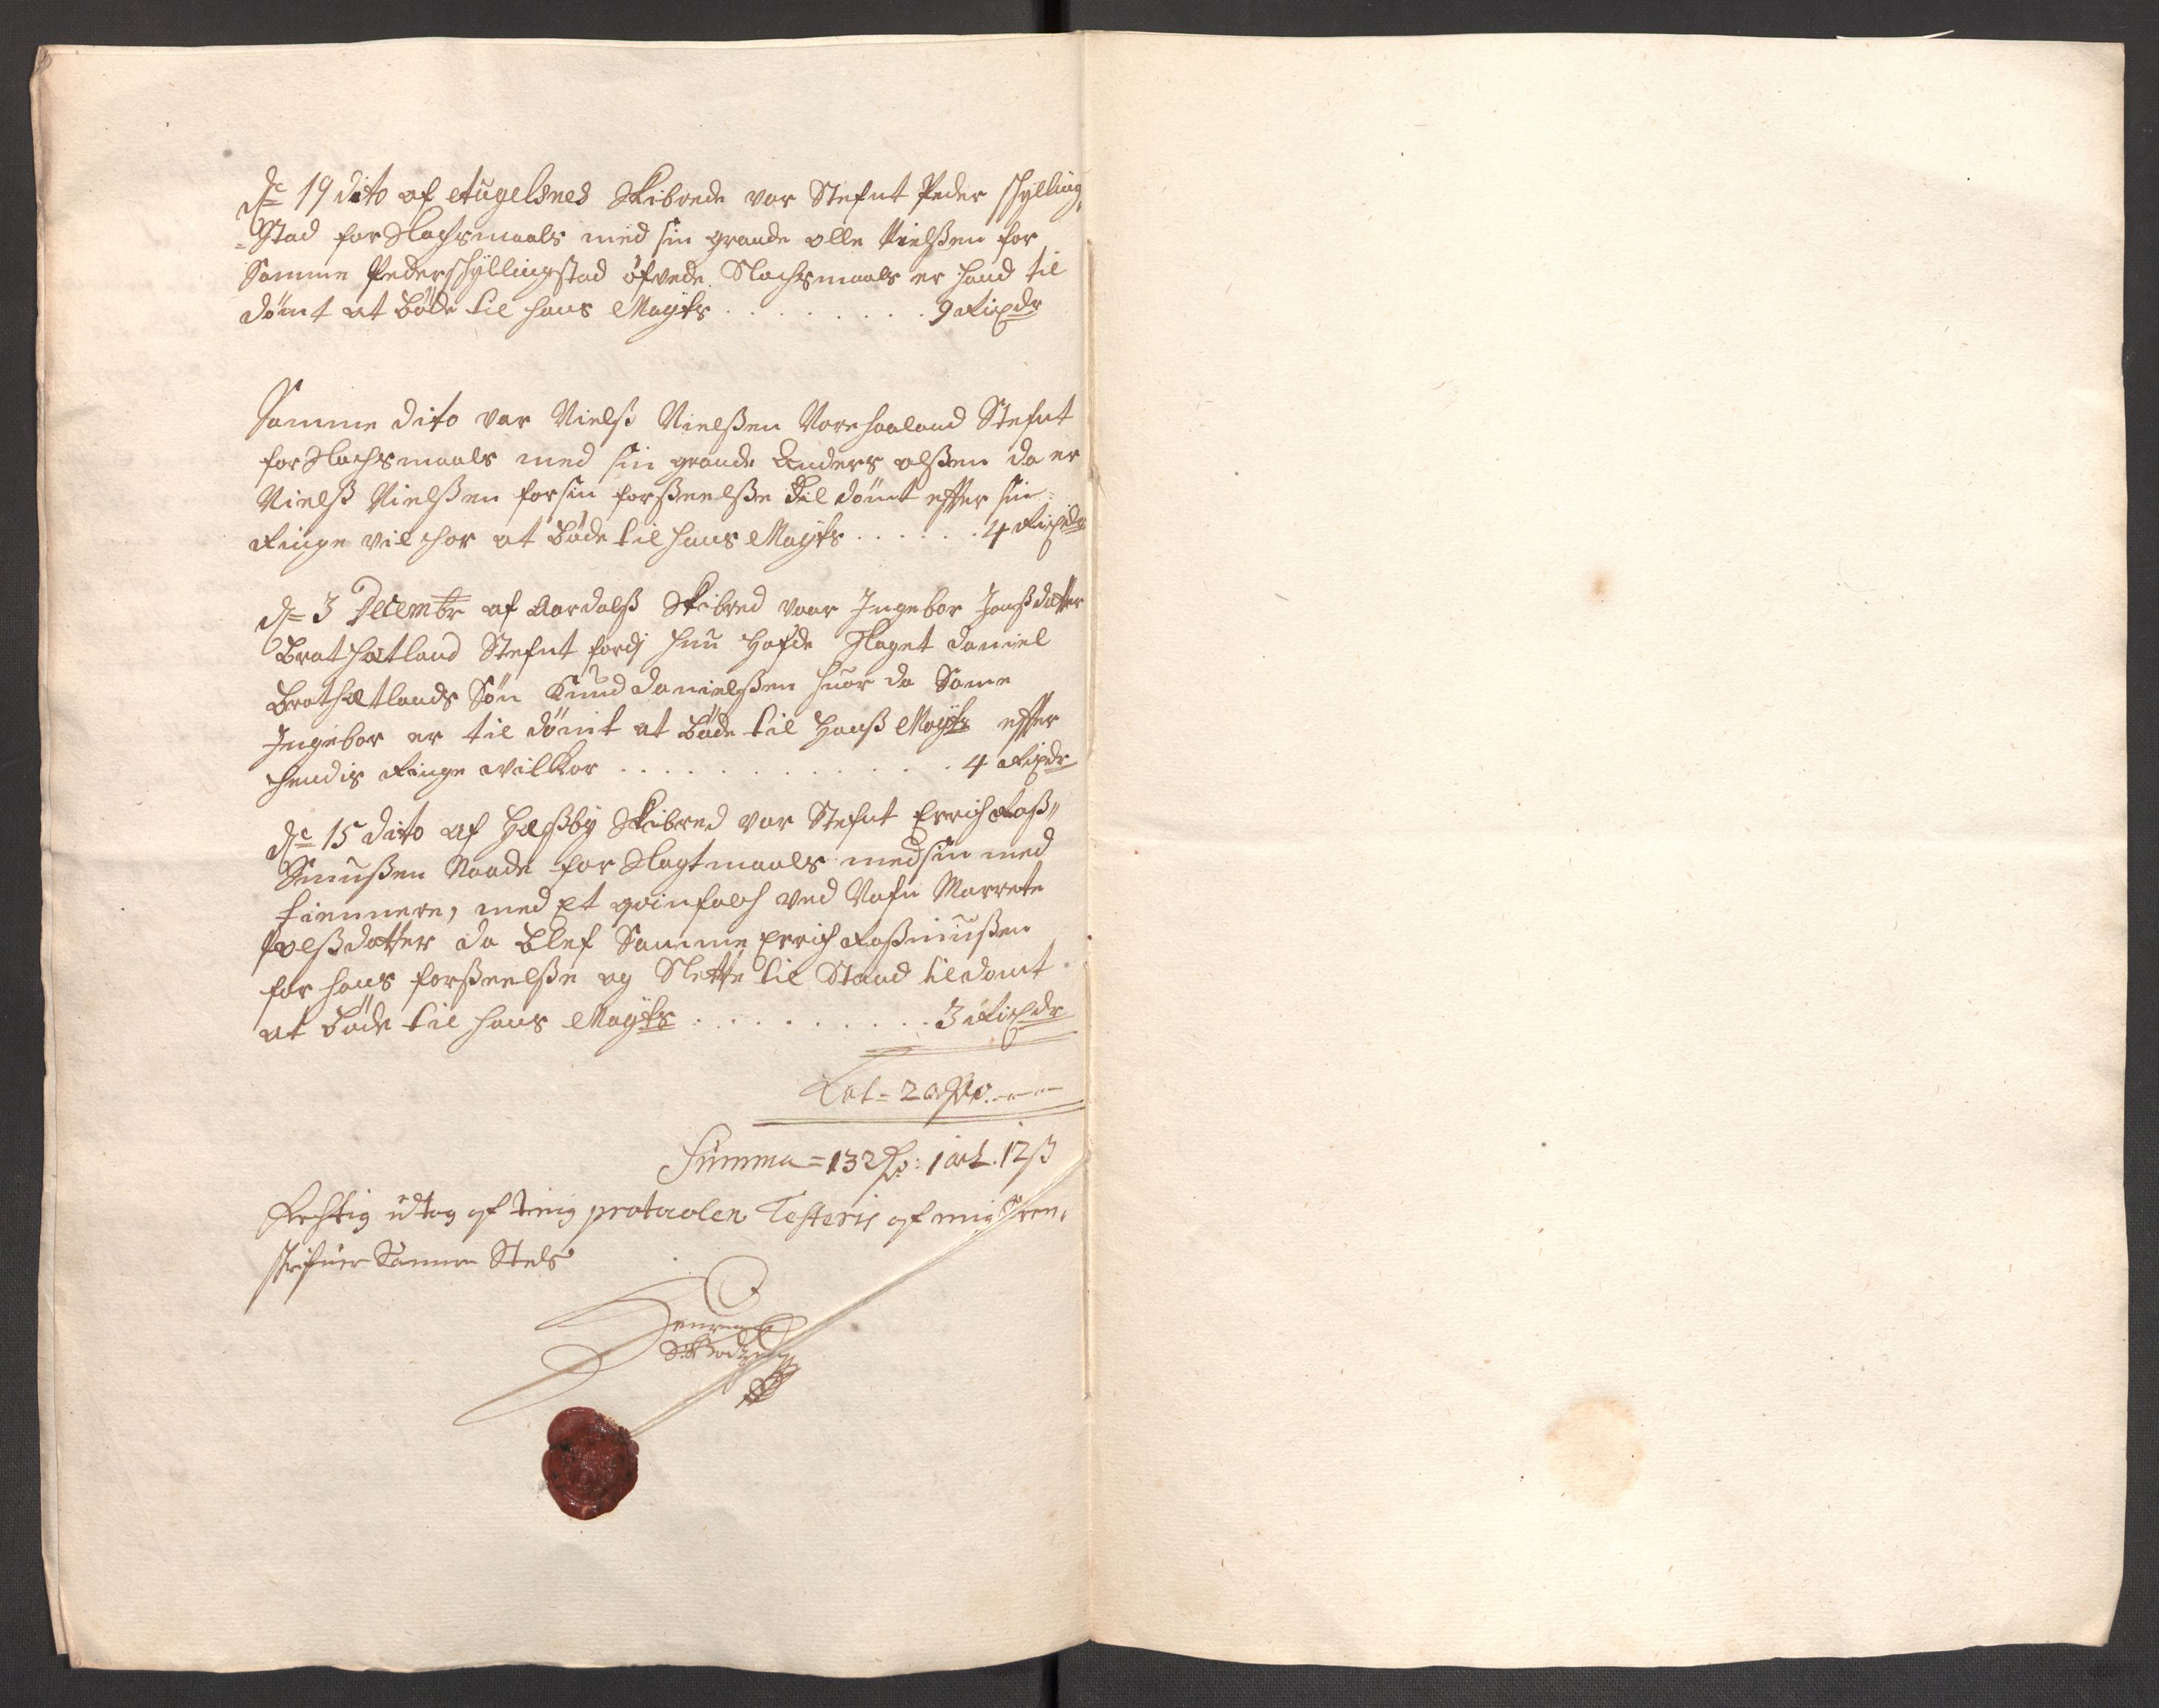 de 19 dito af Augelsnes Skibrede var Stefnt Peder schylling,
=Stad for Slagsmaals med sin grande olle Nielßen for
Samme Peder schyllingstad öfvede Slachsmaals er hand til
dömt at böde til hans Maÿts . . . . . . . . . 9 Rixdr
Samme dito var Nielß Nielßen Vorehaaland Stefnt
for Slachsmaals med sin grande Anders olßen da er
Nielß Nielßen for sin forßeelße til dömt effter sin
Ringe vilchor at böde til hans Maÿts . . . . . . 4 Rixdr
d= 3 Decembr af Aardalß Skibred vaar Ingebor Jonßdatter
Brathætland Stefnt fordj hun hafde slaget Daniel
Brathætlands Sön Knud Danielßen huor da Same
Ingebor er til dömt at böde til Hanß Maÿts effter
hendis Ringe vilkor . . . . . . . . . . . . . 4 Rixdr
de 15 dito af Heßbÿ Skibred var Stefnt Errich Raß„
Smußen Naade for Slagtmaals med sin med
tiennere, med Et qvinfolch ved Nafn Marrete
olßdatter da blef Samme Errich Raßmußen
for hans forßeelße og Slette til Stand til domt
at böde til hans Maÿts . . . . . . . . . . 3 Rixdr
Lat= 20 Rdr. ---
Summa = 132 Rd: 1 ort. 12 ß
Rechtig udtog af ting protocolen Testeris af mig Soren,
skrifuer Samme Steds
Henrich